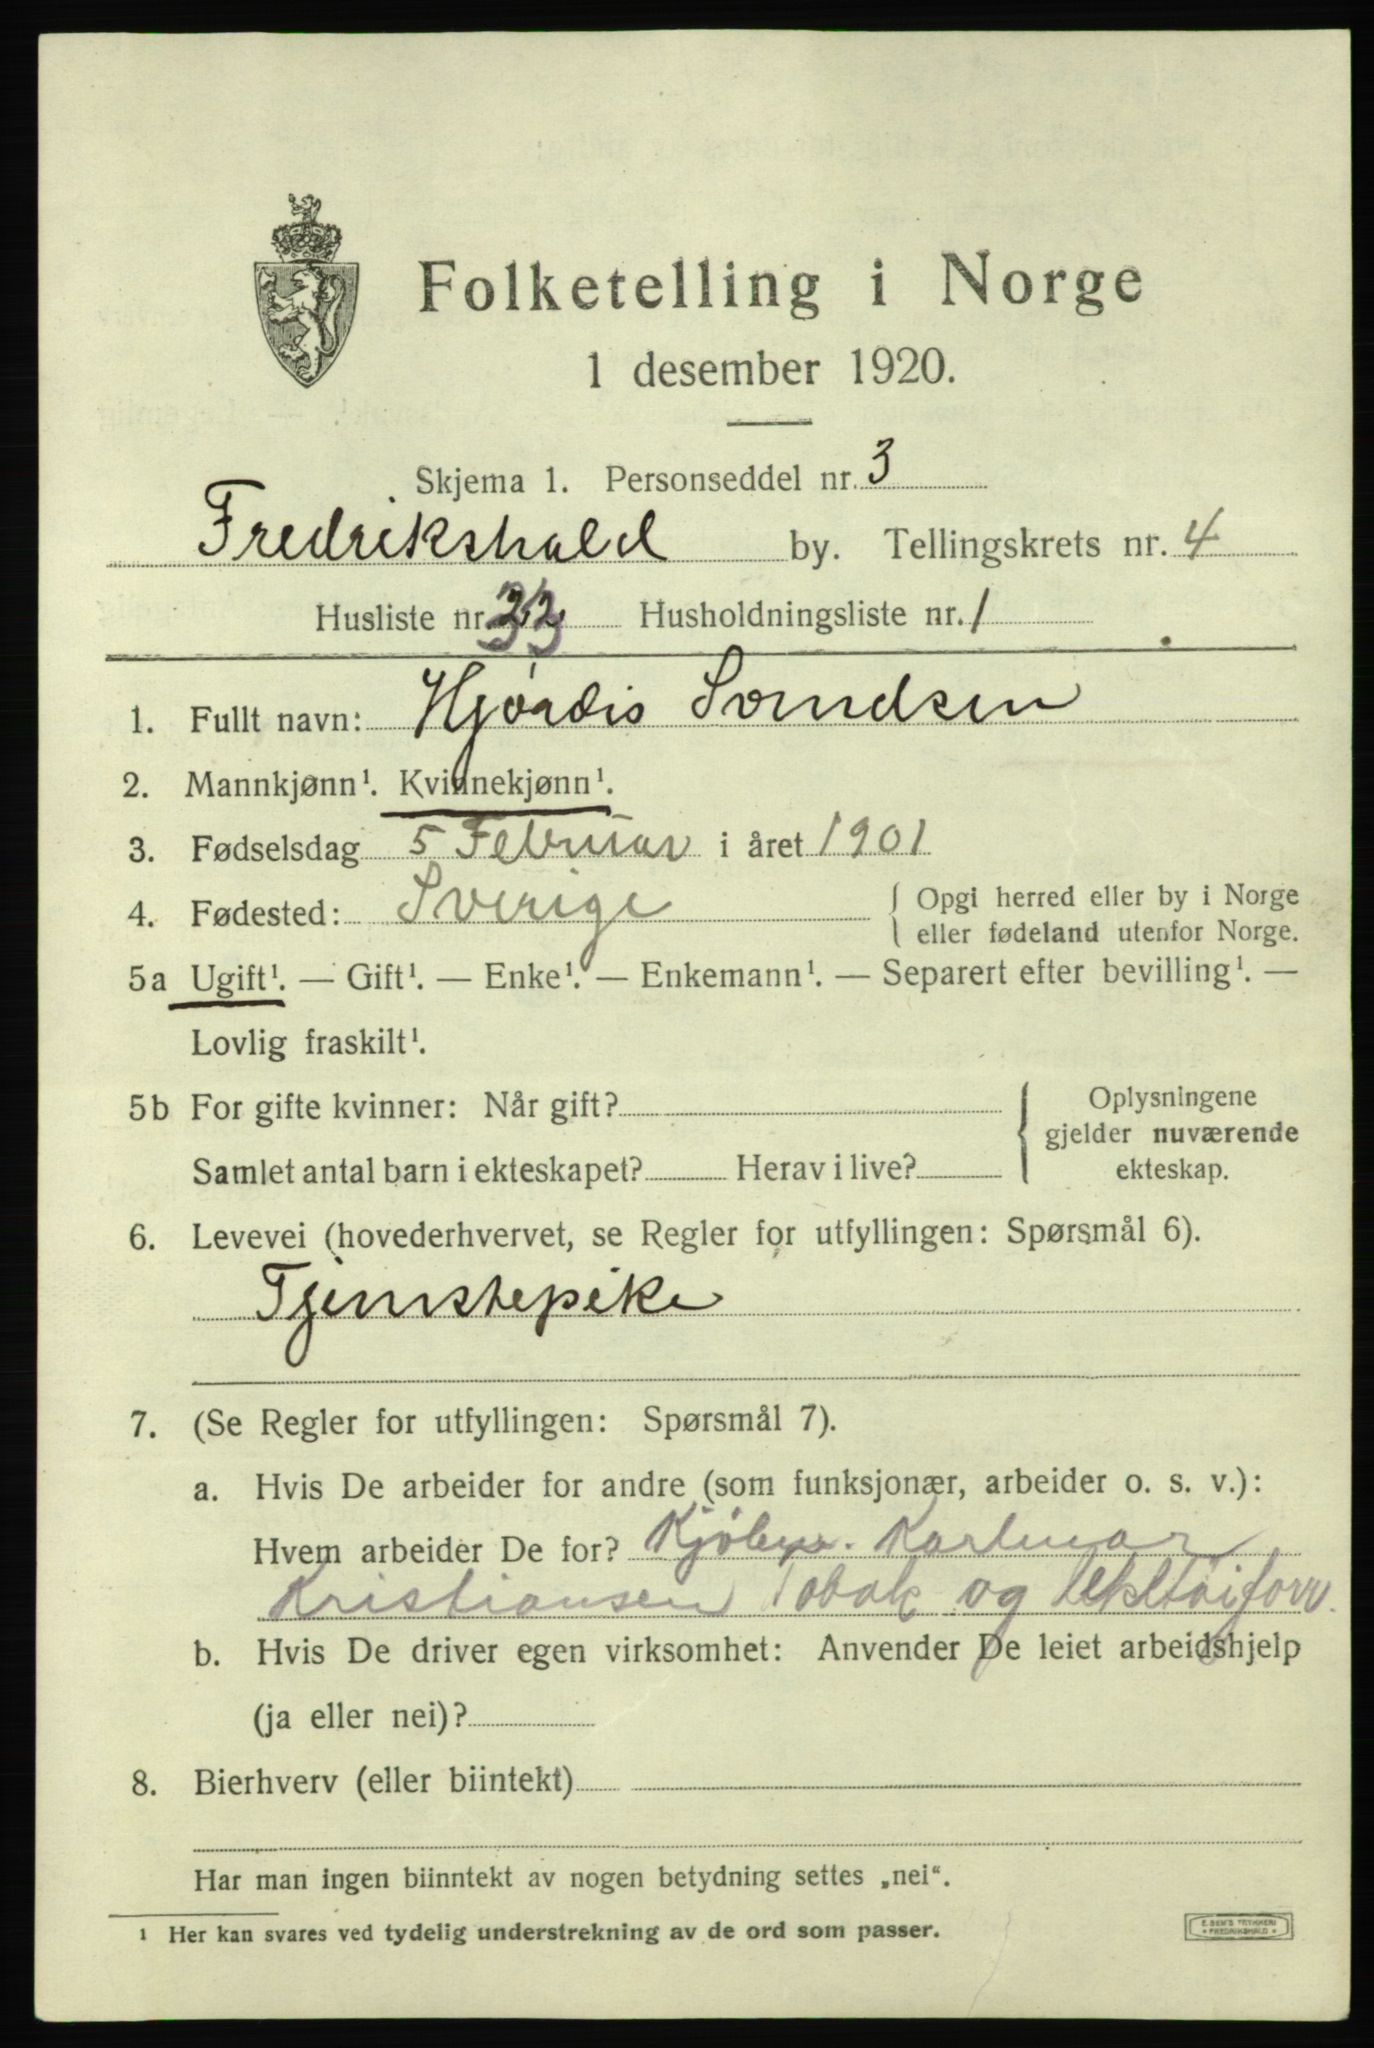 Folketelling i Norge
1 desember 1920.
Skjema 1. Personseddel nr. 3
Fredrikshald by. Tellingskrets nr. 4
Husliste nr. 33 Husholdningsliste nr. 1
1. Fullt navn: Hjördis Svendsen
2. Mannkjønn¹. Kvinnekjønn¹.
3. Fødselsdag 5 Februar i året 1901
4. Fødested: Sverige { Opgi herred eller by i Norge
eller fødeland utenfor Norge.
5a Ugift¹. — Gift¹. — Enke¹. — Enkemann¹. — Separert efter bevilling¹. —
Lovlig fraskilt¹.
5b For gifte kvinner: Når gift?
Samlet antal barn i ekteskapet? Herav i live?
{ Oplysningene
gjelder nuværende
ekteskap.
6. Levevei (hovederhvervet, se Regler for utfyllingen: Spørsmål 6).
Tjenstepike
7. (Se Regler for utfyllingen: Spørsmål 7).
a. Hvis De arbeider for andre (som funksjonær, arbeider o. s. v.):
Hvem arbeider De for? Karlmar
Kristiansen Tobak og
b. Hvis De driver egen virksomhet: Anvender De leiet arbeidshjelp
(ja eller nei)?
8. Bierhverv (eller biintekt)
Har man ingen biinntekt av nogen betydning settes „nei“.
¹ Her kan svares ved tydelig understrekning av de ord som passer.
E. SEM'S TRYKKERI
FREDRIKSHALD